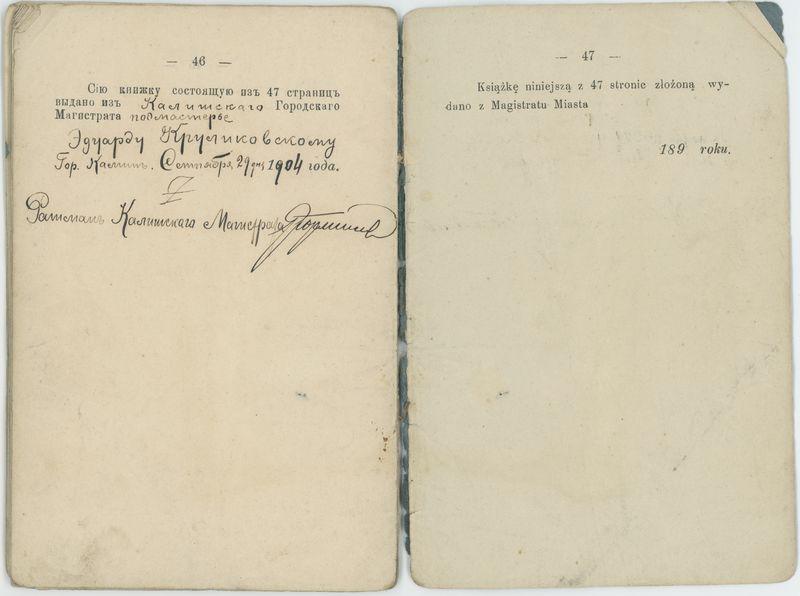 — 46 —
Сію книжку состоящую изъ 47 страницъ
выдано изъ Калишскаго Городскаго
Магистрата подмастерье
Эдуарду Круликовскому
Гор. Калишъ. Сентября 29 дня 1904 года.
Ратманъ Калишскаго Магистрата
— 47 —
Książkę niniejszą z 47 stronic złożoną wy-
dano z Magistratu Miasta
189 roku.